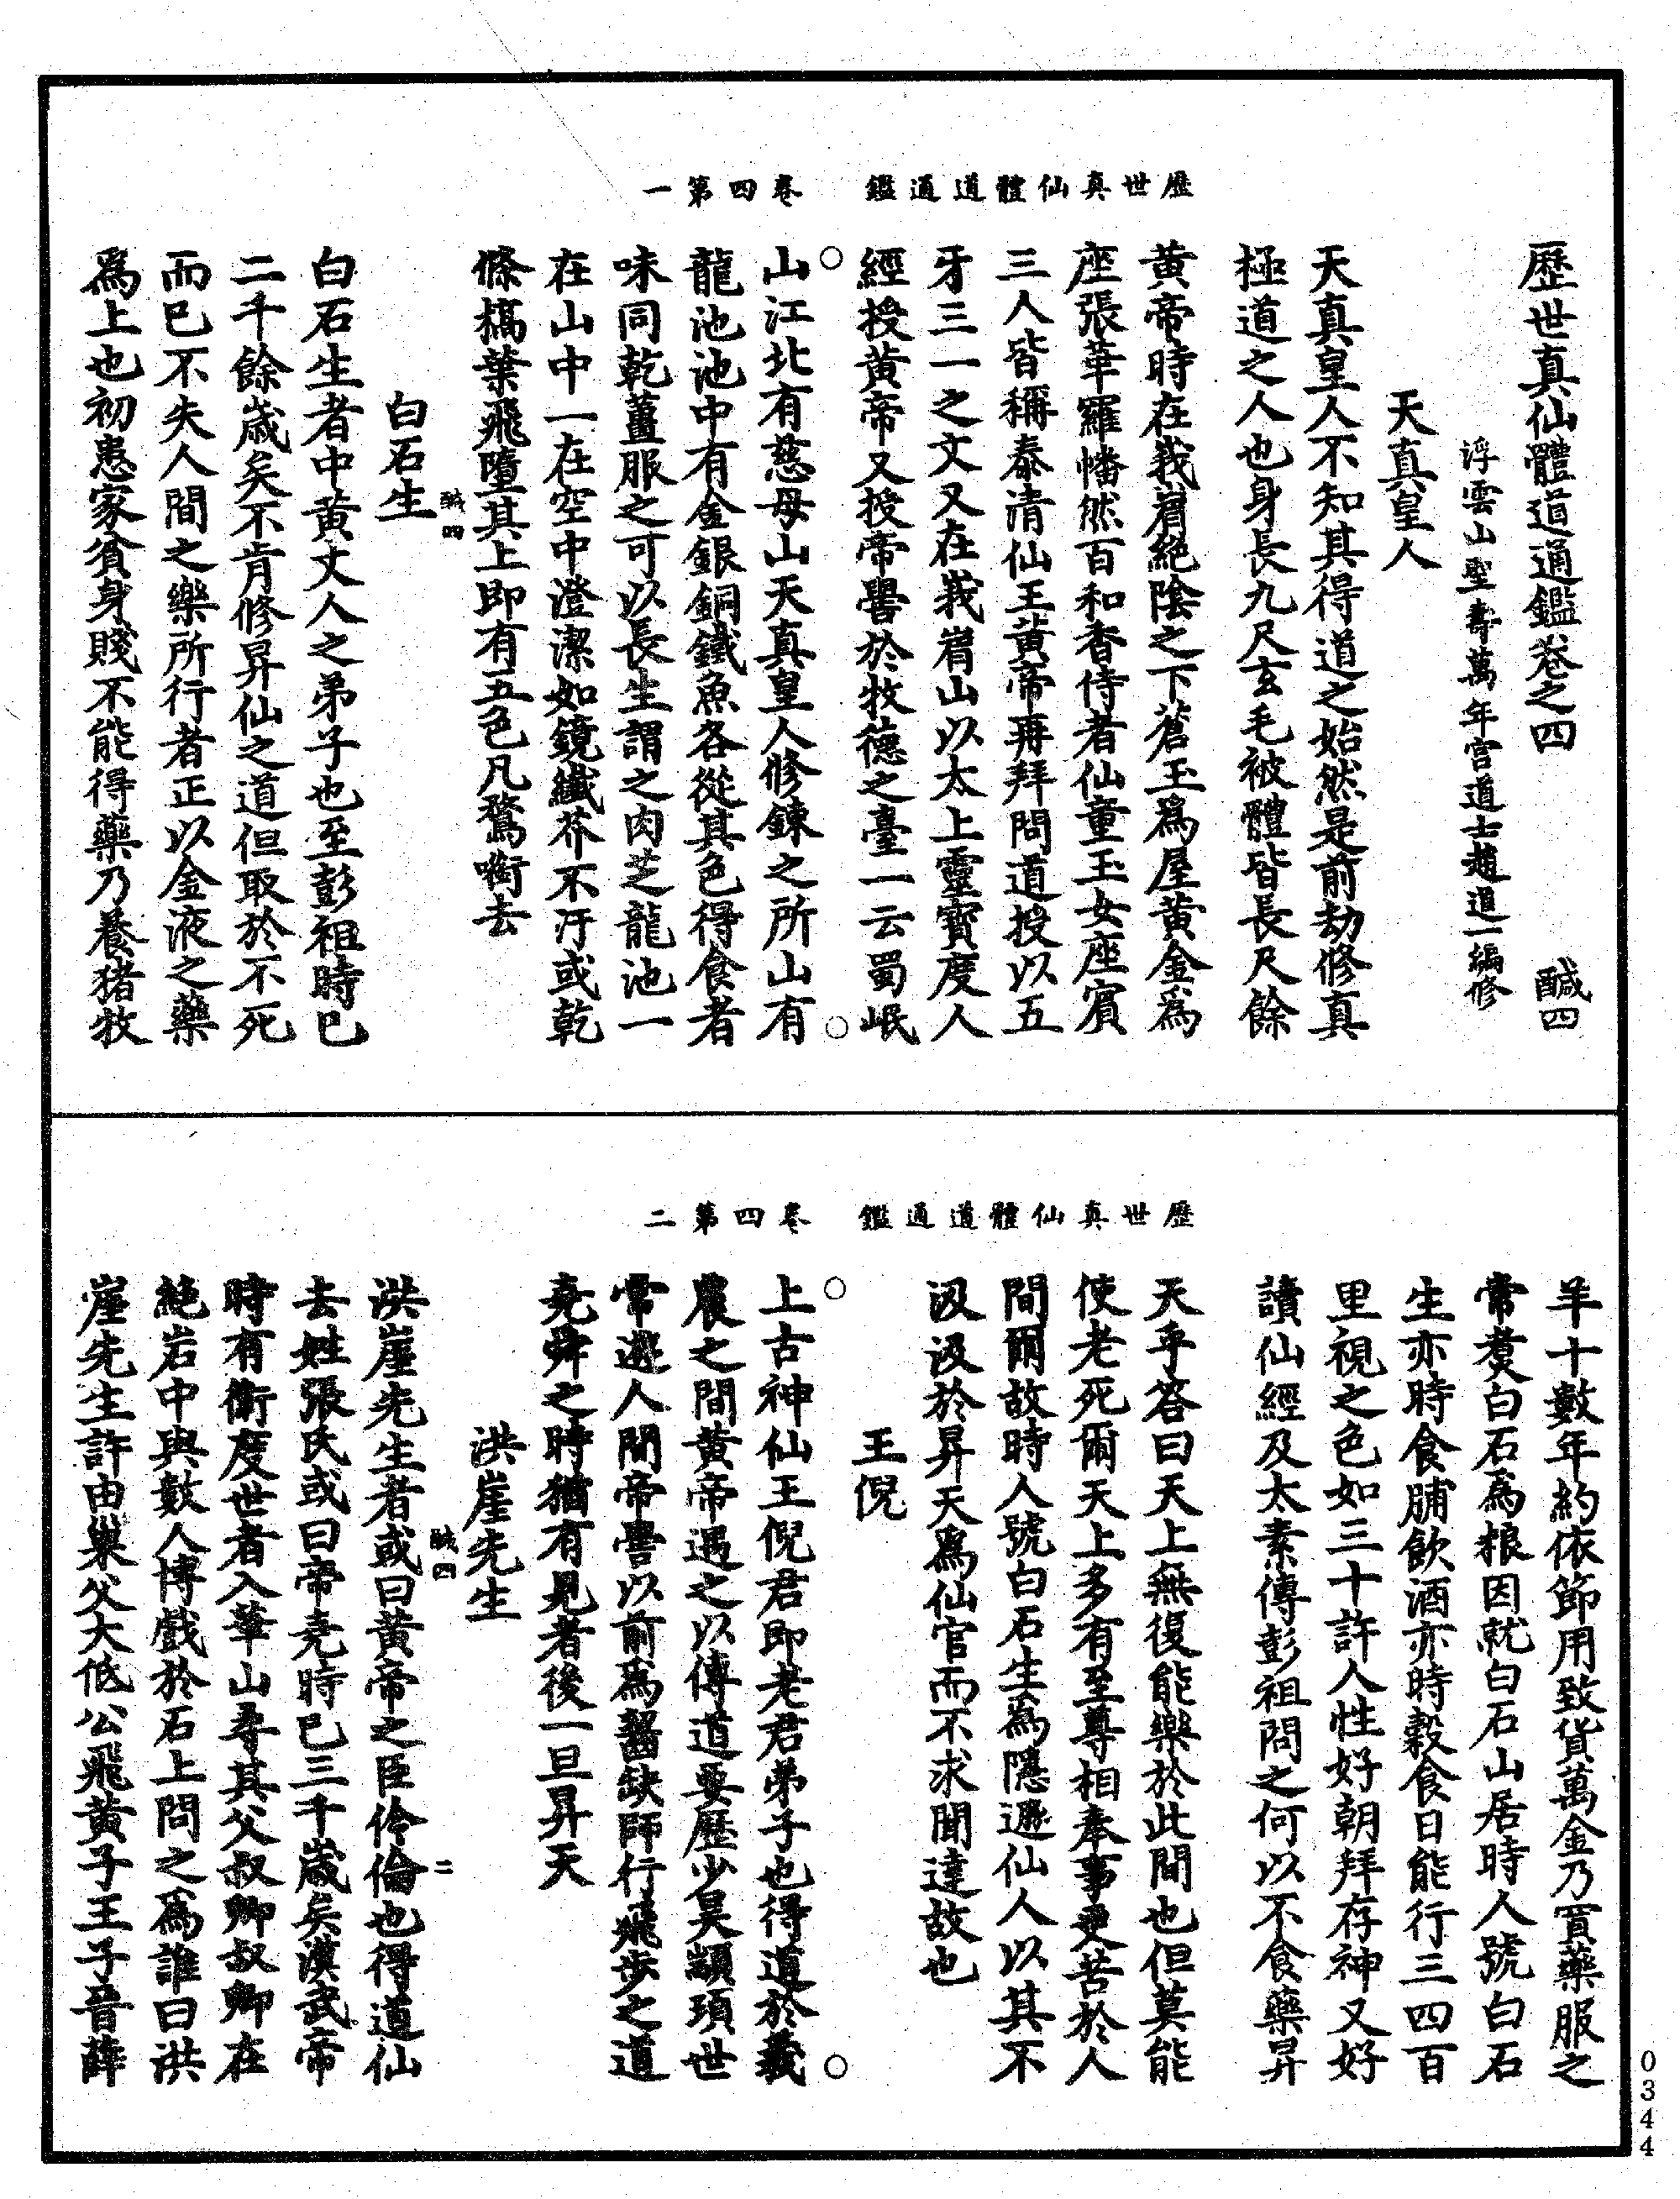 歷世真仙體道通鑑　卷四第一
歷世真仙體道通鑑卷之四　鹹四
浮雲山聖壽萬年宮道士趙道一編修
天真皇人
天真皇人不知其得道之始然是前劫修真
極道之人也身長九尺玄毛被體皆長尺餘
黃帝時在峩嵋絕陰之下蒼玉爲屋黃金爲
座張華羅幡然百和香侍者仙童玉女座賓
三人皆稱泰清仙王黃帝再拜問道授以五
牙三一之文又在峩嵋山以太上靈寶度人
經授黃帝又授帝嚳於牧德之臺一云蜀岷
山江北有慈母山天真皇人修鍊之所山有
龍池池中有金銀銅鐵魚各從其色得食者
味同乾薑服之可以長生謂之肉芝龍池一
在山中一在空中澄潔如鏡纖芥不汙或乾
條槁葉飛墮其上即有五色凡鶩啣去
鹹四
白石生
白石生者中黃丈人之弟子也至彭祖時巳
二千餘歲矣不肯修昇仙之道但取於不死
而巳不失人間之樂所行者正以金液之藥
爲上也初患家貧身賤不能得藥乃養猪牧
歷世真仙體道通鑑　卷四第二
羊十數年約依節用致貨萬金乃買藥服之
常煑白石爲粮因就白石山居時人號白石
生亦時食脯飲酒亦時穀食日能行三四百
里視之色如三十許人性好朝拜存神又好
讀仙經及太素傳彭祖問之何以不食藥昇
天乎答曰天上無復能樂於此間也但莫能
使老死爾天上多有至尊相奉事更苦於人
間爾故時人號白石生爲隱遯仙人以其不
汲汲於昇天爲仙官而不求聞達故也
王倪
上古神仙王倪君即老君弟子也得道於羲
農之間黃帝遇之以傳道要歷少昊顓頊世
常遊人間帝嚳以前爲齧缺師行飛步之道
堯舜之時猶有見者後一旦昇天
洪崖先生
鹹四　二
洪崖先生者或曰黃帝之臣伶倫也得道仙
去姓張氏或曰帝堯時巳三千歲矣漢武帝
時有衛度世者入華山尋其父叔卿叔卿在
絕岩中與數人博戲於石上問之爲誰曰洪
崖先生許由巢父大低公飛黃子王子晉薛
0344